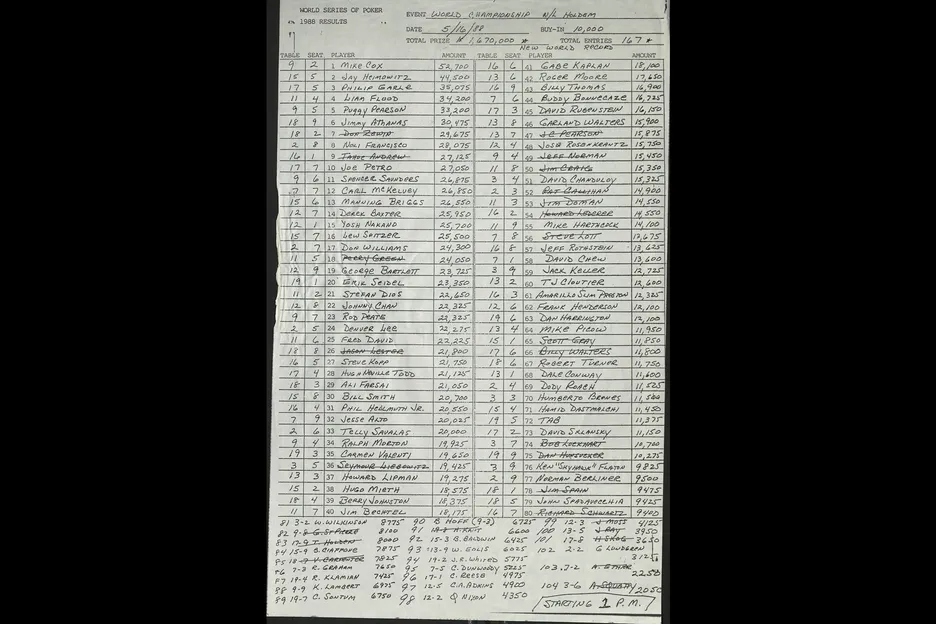 WORLD SERIES OF POKER
1988 RESULTS
EVENT WORLD CHAMPIONSHIP N/L HOLDEM
DATE 5/16/88 BUY-IN 10,000
TOTAL PRIZE $ 1,670,000 * TOTAL ENTRIES 167 *
NEW WORLD RECORD
TABLE SEAT PLAYER AMOUNT TABLE SEAT PLAYER AMOUNT
9 2 1 MIKE COX 52,700 16 6 41 GABE KAPLAN 18,100
15 5 2 JAY HEIMOWITZ 44,500 13 6 42 ROGER MOORE 17,650
17 5 3 PHILIP GARLE 35,075 16 9 43 BILLY THOMAS 16,900
11 4 4 LIAM FLOOD 34,200 7 6 44 BUDDY BONNECAZE 16,725
9 5 5 PUGGY PEARSON 33,200 17 3 45 DAVID RUBENSTEIN 16,150
18 9 6 JIMMY ATHANAS 30,475 13 8 46 GARLAND WALTERS 15,900
18 2 7 DON ZEWIN 29,675 13 7 47 J.C. PEARSON 15,875
2 8 8 NOLI FRANCISCO 28,075 12 4 48 JOSE ROSENKRANTZ 15,750
16 1 9 TAHOE ANDREW 27,125 9 4 49 JEFF NORMAN 15,450
17 7 10 JOE PETRO 27,050 11 8 50 JIM CRAIG 15,350
9 6 11 SPENCER SAUNDERS 26,875 3 4 51 DAVID CHANDULOY 15,325
7 7 12 CARL MCKELVEY 26,850 2 3 52 PAT CALLIHAN 14,900
15 6 13 MANNING BRIGGS 26,550 11 3 53 JIM DOMAN 14,550
12 7 14 DEREK BAXTER 25,950 16 2 54 HOWARD LEDERER 14,550
12 1 15 YOSH NAKANO 25,700 11 9 55 MIKE HARTHCOCK 14,100
15 7 16 LEW SPITZER 25,500 7 8 56 STEVE LOTT 13,675
2 7 17 DON WILLIAMS 24,300 16 8 57 JEFF ROTHSTEIN 13,625
11 5 18 PERRY GREEN 24,050 7 1 58 DAVID CHEW 13,600
12 9 19 GEORGE BARTLETT 23,725 3 9 59 JACK KELLER 12,725
19 1 20 ERIK SEIDEL 23,350 13 2 60 TJ CLOUTIER 12,600
11 2 21 STEFAN DIOS 22,650 16 3 61 AMARILLO SLIM PRESTON 12,325
12 8 22 JOHNNY CHAN 22,325 12 6 62 FRANK HENDERSON 12,100
9 7 23 ROD PEATE 22,325 19 6 63 DAN HARRINGTON 12,100
2 5 24 DENVER LEE 22,275 13 4 64 MIKE PICOW 11,950
11 6 25 FRED DAVID 22,225 15 1 65 SCOTT GRAY 11,850
18 8 26 JASON LESTER 21,800 17 6 66 BILLY WALTERS 11,800
16 5 27 STEVE KOPP 21,750 18 6 67 ROBERT TURNER 11,750
17 4 28 HUGH NEVILLE TODD 21,125 13 1 68 DALE CONWAY 11,600
18 3 29 ALI FARSAI 21,050 2 4 69 DODY ROACH 11,525
15 8 30 BILL SMITH 20,700 3 3 70 HUMBERTO BRENES 11,500
16 4 31 PHIL HELLMUTH JR. 20,550 15 4 71 HAMID DASTMALCHI 11,450
7 9 32 JESSE ALTO 20,025 19 5 72 TAB 11,375
2 6 33 TELLY SAVALAS 20,000 17 2 73 DAVID SKLANSKY 11,150
9 4 34 RALPH MORTON 19,925 3 7 74 BOB LOCKHART 10,700
19 3 35 CARMEN VALENTI 19,650 19 9 75 10,275
3 5 36 SEYMOUR LIEBOWITZ 19,425 3 9 76 KEN "SKYHAWK" FLATON 9825
13 3 37 HOWARD LIPMAN 19,275 2 9 77 NORMAN BERLINER 9500
15 2 38 HUGO MIETH 18,575 18 1 78 JIM SPAIN 9475
18 4 39 BERRY JOHNSTON 18,375 18 5 79 JOHN SPADAVECCHIA 9425
11 7 40 JIM BECHTEL 18,175 16 7 80 RICHARD SCHWARTZ 9400
81 3-2 W. WILKINSON 8775 90 B HOFF (9-3) 6725 99 12-3 J MOSS 4125
82 9-8 G. ST PIERRE 8100 91 6600 100 13-5 3950
83 17-9 T. HOLDEN 8000 92 15-3 B. BALDWIN 6425 101 17-8 H SKOG 3650
84 15-9 B. CIAFFONE 7875 93 13-9 W. EOLIS 6025 102 2-2 G LUNDGREN 3125
85 18-9 V. CARPENTER 7825 94 19-2 J.E. WHITED 5775
86 7-3 R. GRAHAM 7650 95 7-5 C. DUNWOODY 5225 103 7-2 2250
87 19-4 R. KLAMIAN 7425 96 17-1 C. REESE 4975
88 9-9 K. LAMBERT 6975 97 12-5 C.A. ADKINS 4900 104 3-6 2050
89 19-7 C. SONTUM 6750 98 12-2 Q NIXON 4350
STARTING 1 P.M.